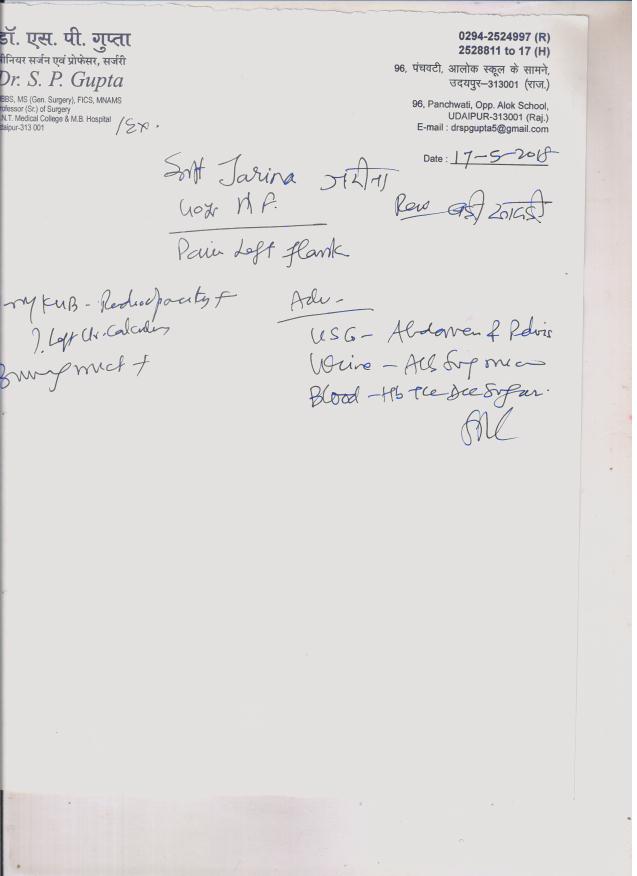 डॉ. एस. पी. गुप्ता
सीनियर सर्जन एवं प्रोफेसर, सर्जरी
Dr. S. P. Gupta
BBS, MS (Gen. Surgery), FICS, MNAMS
rofessor (Sr.) of Surgery
.N.T. Medical College & M.B. Hospital
daipur-313 001
/Ex.
0294-2524997 (R)
2528811 to 17 (H)
96, पंचवटी, आलोक स्कूल के सामने,
उदयपुर–313001 (राज.)
96, Panchwati, Opp. Alok School,
UDAIPUR-313001 (Raj.)
E-mail : drspgupta5@gmail.com
Date : 17-5-2018
Smt Jarina जरीना
60yr F.
Pain Left flank
KUB - Radiopacity +
? Left Ur. Calculus
Burning mict +
Adv -
USG - Abdomen & Pelvis
Urine - Alb Sug micro
Blood - Hb TLC DLC Sugar.